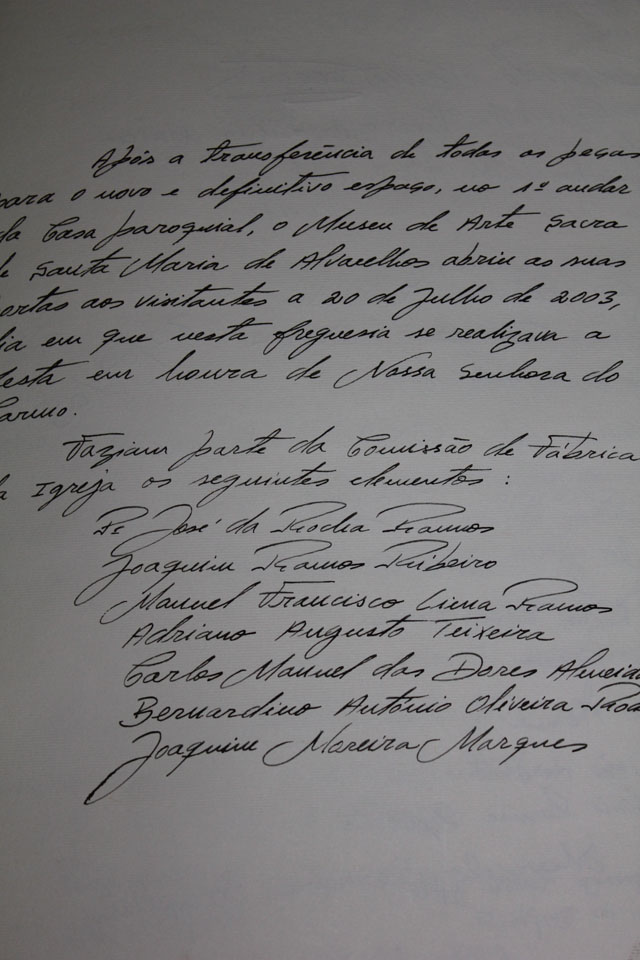 Após a transferência de todas as peças
para o novo e definitivo espaço, no 1º andar
da Casa paroquial, o Museu de Arte Sacra
de Santa Maria de Alvarelhos abriu as suas
portas aos visitantes a 20 de Julho de 2003,
dia em que nesta freguesia se realizava a
festa em honra de Nossa Senhora do
Carmo.
Faziam parte da Comissão de Fábrica
da Igreja os seguintes elementos:
Pe José da Rocha Ramos
Joaquim Ramos Ribeiro
Manuel Francisco Lima Ramos
Adriano Augusto Teixeira
Carlos Manuel das Dores Almeida
Bernardino António Oliveira
Joaquim Moreira Marques